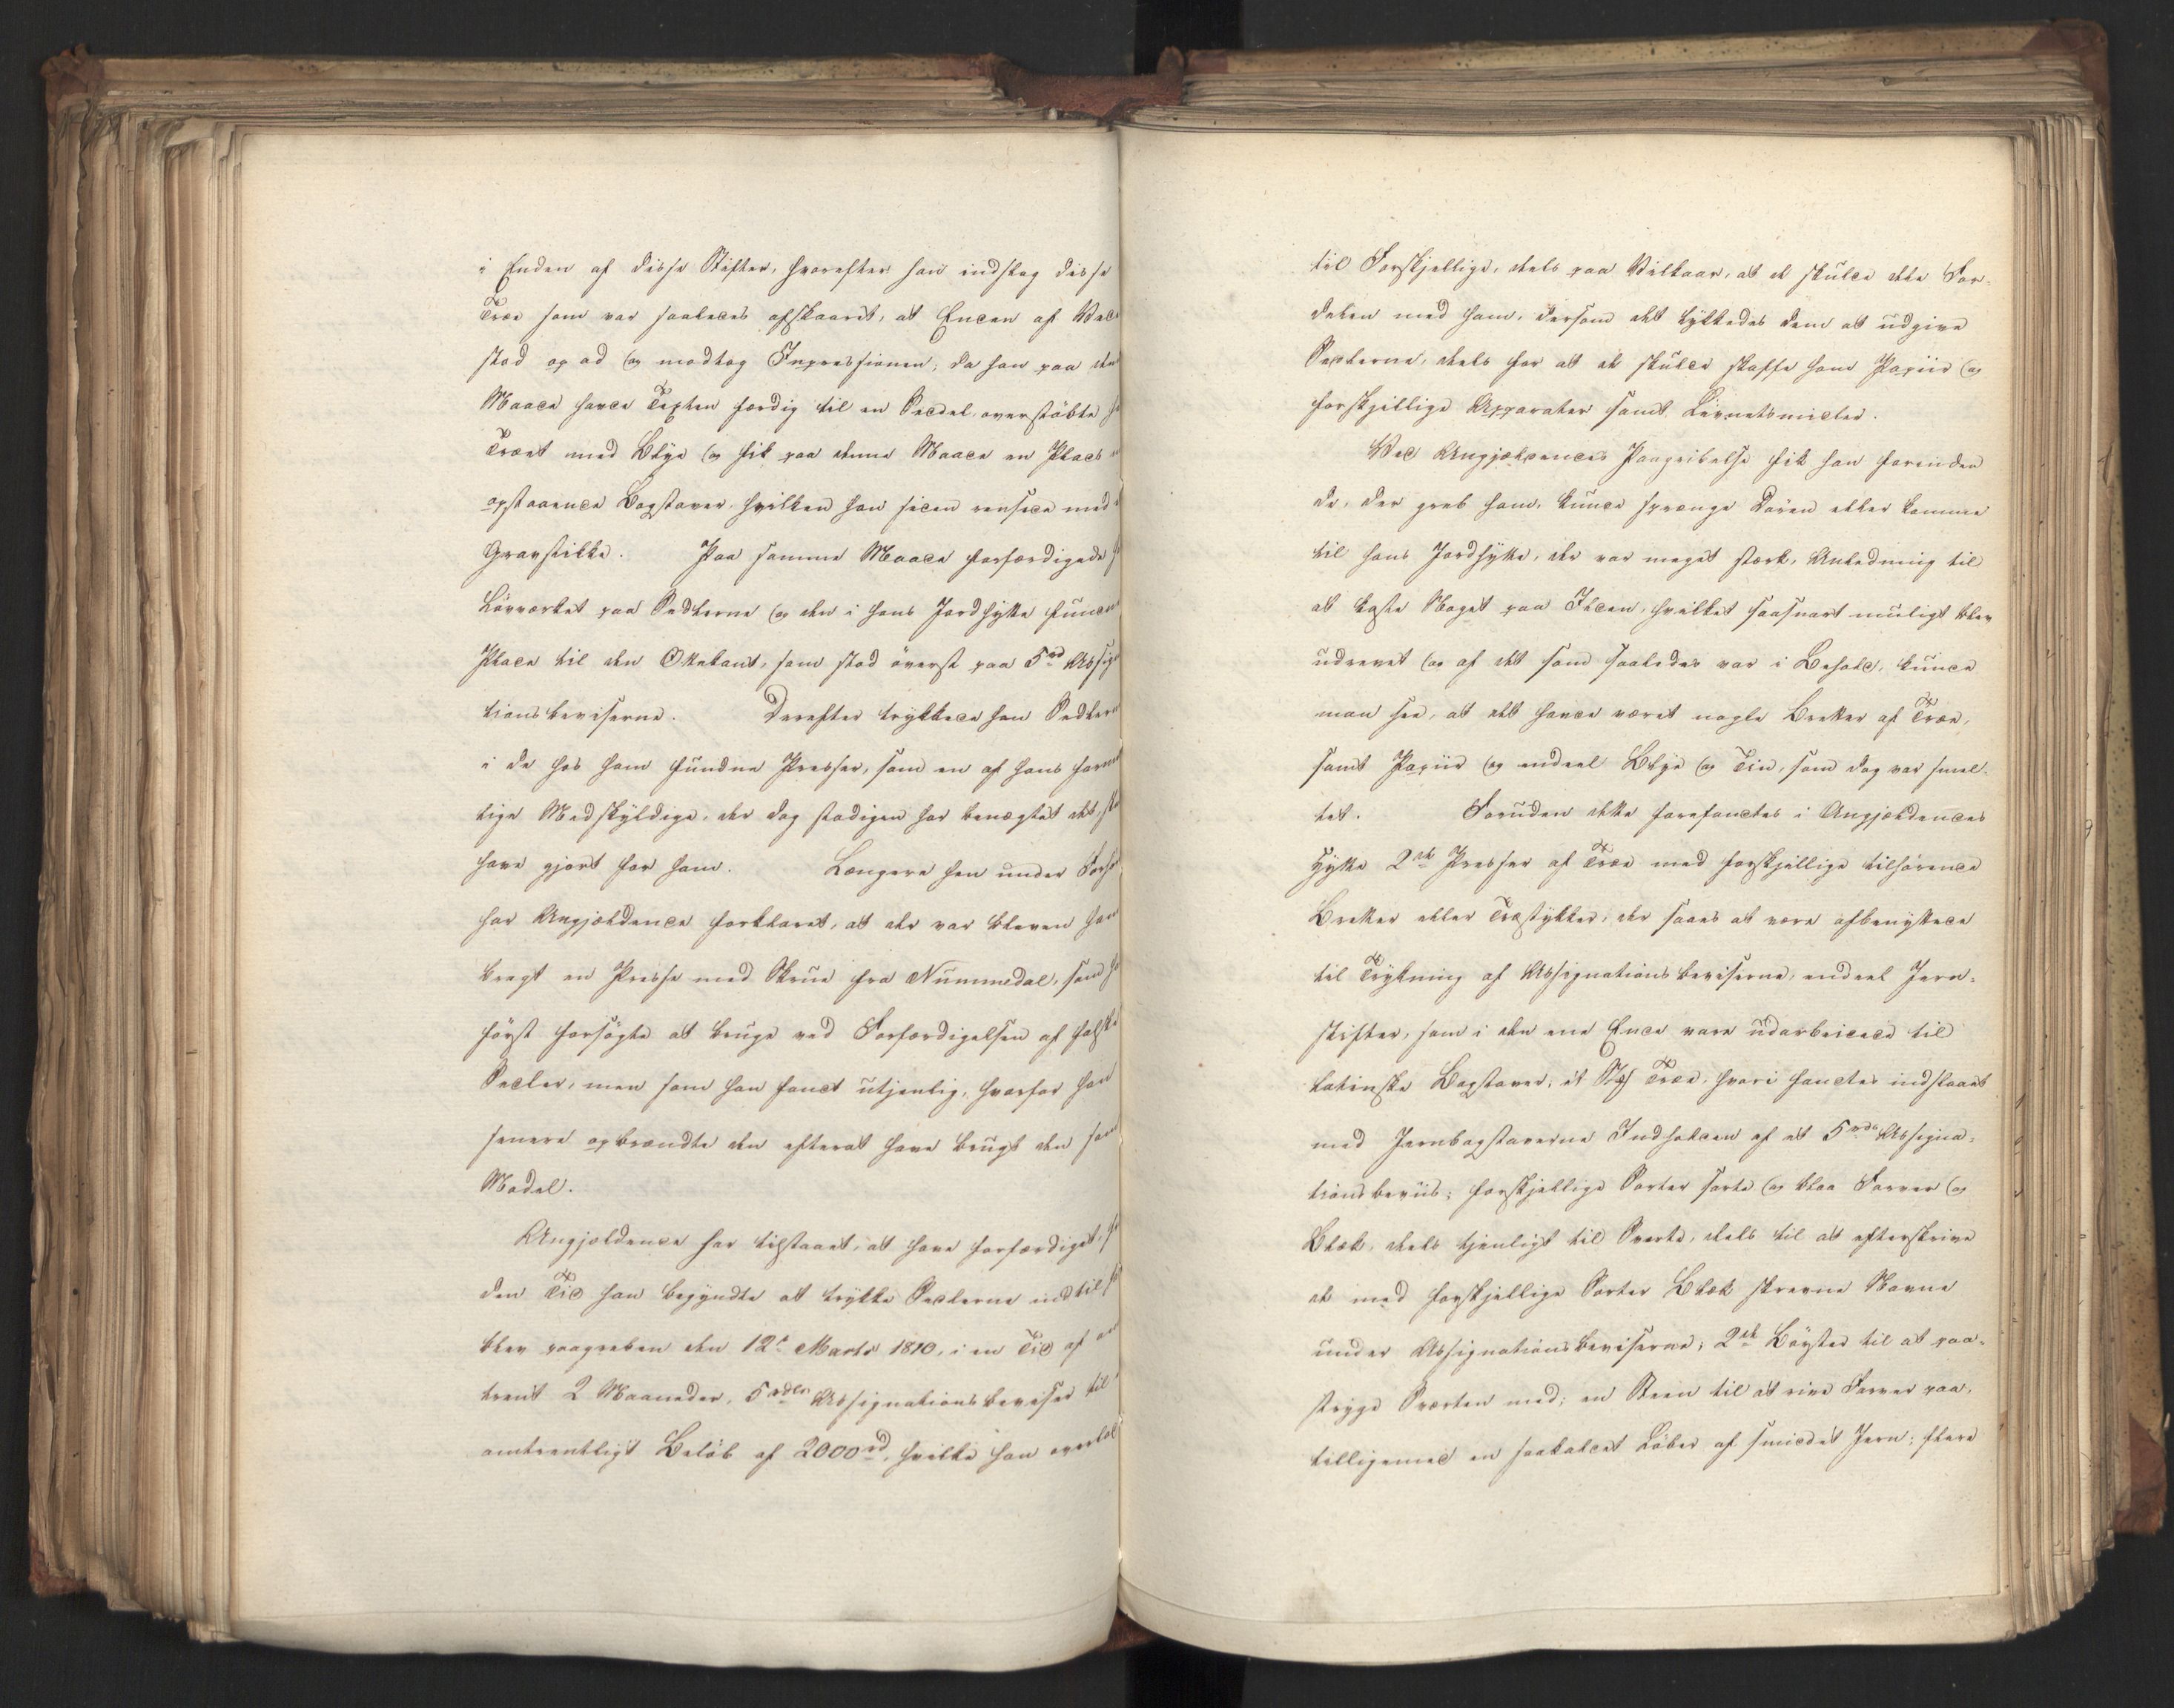 i Enden af disse Stifter, hvorefter han indslog disse
Træe som var saaledes afskaaret, at Enden af Ved
stod op ad og modtog Impressionen; da han paa den
Maade havde Texten færdig til en Seddel, overstøbte
Træet med Blye og fik paa denne Maade en Plade
opstaaende Bogstaver, hvilken han siden rensede med
Gravstikke. Paa samme Maade forfærdigede
Løvværket paa Sedlerne og den i hans Jordhytte fundne
Plade til den Oktekant, som stod øverst paa 5 rd Assig
tionsbeviserne. Derefter trykkede han Sedlerne
i de hos ham fundne Presser, som en af hans formeent
lige Medskyldige, der dog stadigen har benægtet det, skal
have gjort for ham. Længere hen under Forhør
har Angjældende forklaret, at der var bleven ham
bragt en Presse med Skrue fra Nummedal, som han
først forsøgte at bruge ved Forfærdigelsen af falske
Sedler, men som han fandt utjenlig, hvorfor han
senere opbrændte den efterat have brugt den som
Model.
Angjældende har tilstaaet, at have forfærdiget,
den Tid han begyndte at trykke Sedlerne indtil
blev paagreben den 12te Marts 1810, i en Tid af om
trent 2 Maaneder, 5 rdlr Assignationsbeviser til
omtrentligt Beløb af 2000 rd, hvilke han overlod
til Forskjellige, dels paa Vilkaar, at de skulde dele For-
delen med ham, dersom det lykkedes dem at udgive
Sedlerne, dels for at de skulde skaffe ham Papiir og
forskjellige Apparater samt Livnetsmidler.
Ved Angjældendes Paagribelse fik han forinden
de, der greb ham, kunde sprænge Døren eller komme
til hans Jordhytte, der var meget stærk, Anledning til
at kaste Noget paa Ilden, hvilket saasnart muligt blev
udrevet og af det som saaledes var i Behold, kunde
man see, at det havde været nogle Bretter af Træe,
samt Papiir og endeel Blye og Tin, som dog var smel-
tet. Foruden dette forefandtes i Angjældendes
Hytte 2de Presser af Træe med forskjellige tilhørende
Bretter eller Træstykker, der saaes at være afbenyttede
til Trykning af Assignationsbeviserne, endeel Jern-
stifter, som i den ene Ende vare udarbeidede til
latinske Bogstaver; et Stk Træe, hvori fandtes indslaaet
med Jernbogstaverne Indholden af et 5 rdlr Assigna-
tionsbeviis; forskjellige Sorter sorte og blaa Farver og
Blæk, dels tjenligt til Sverte, dels til at efterskrive
de med forskjellige Sorter Blæk skrevne Navne
under Assignationsbeviserne; 2de Børster til at paa-
stryge Sværten med; en Steen til at rive Farver paa,
tilligemed en saakaldet Løber af smedet Jern; flere